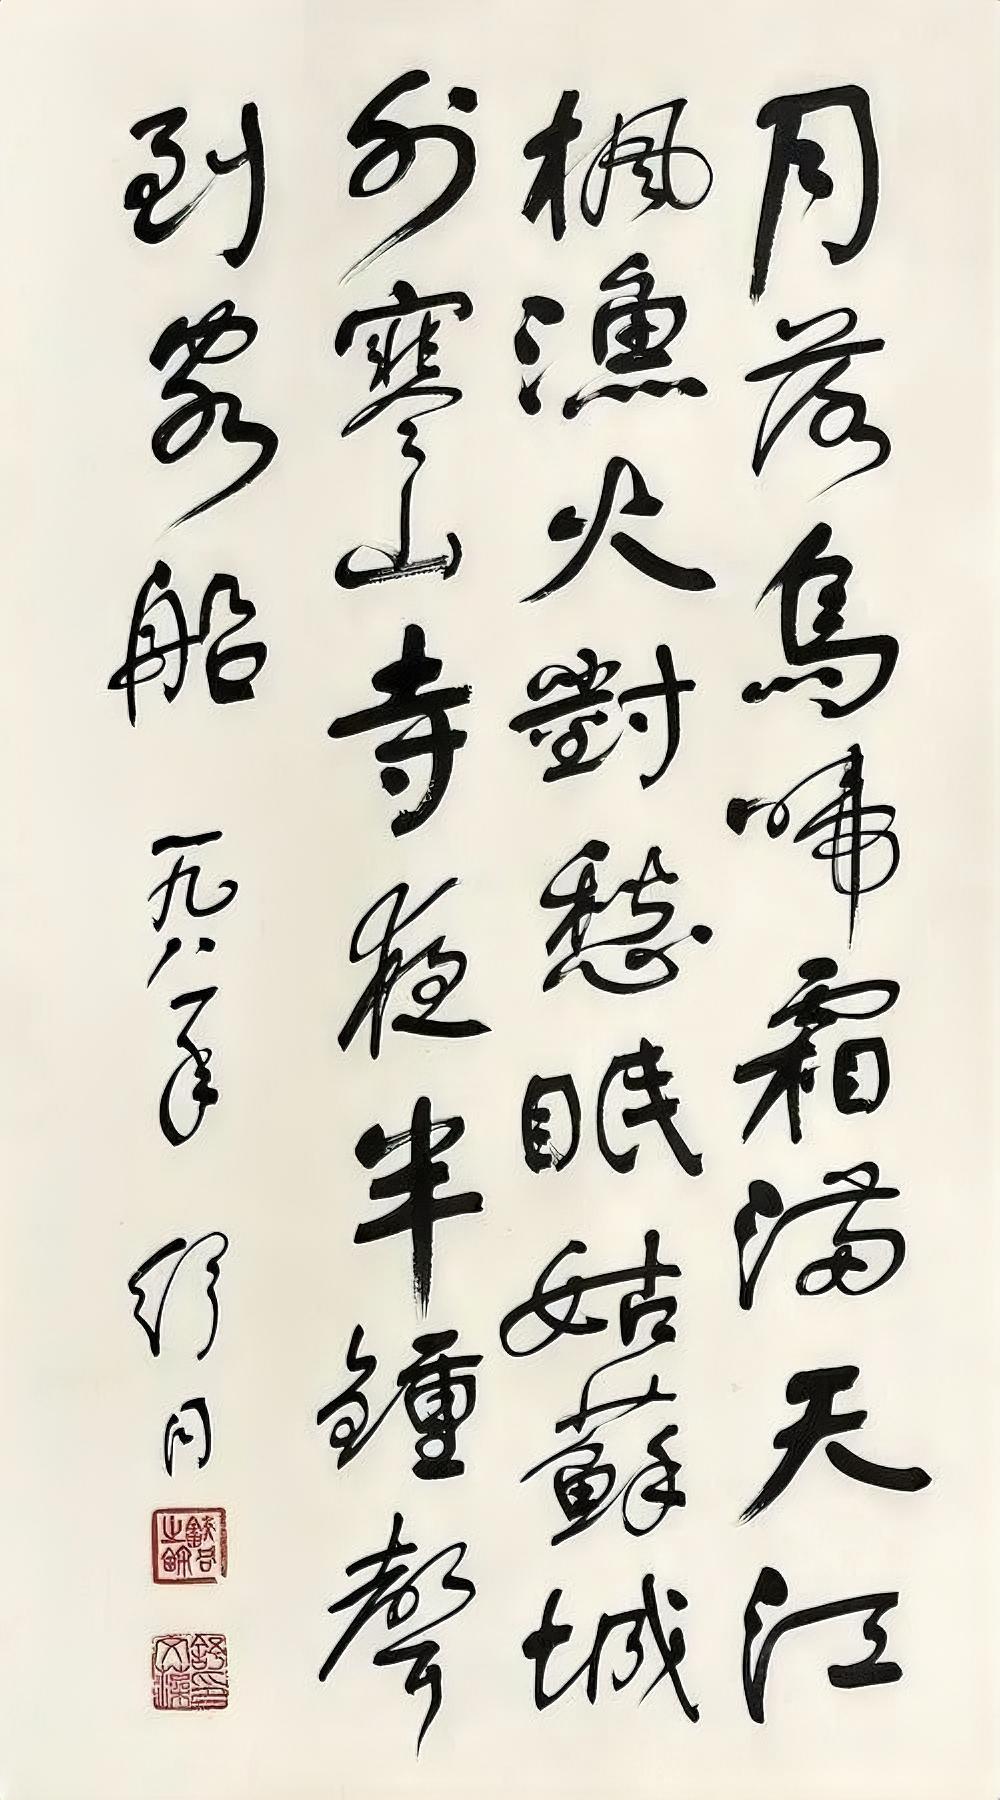 月落烏啼霜滿天江
枫漁火對愁眠姑蘇城
外寒山寺夜半鍾聲
到客船
一九八一年
舒同